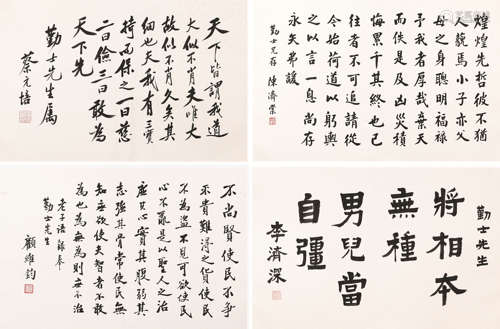 天下皆謂我道
大似不肖夫唯大
故似不肖久矣其
細也夫我有三寶
持而保之一曰慈
二曰儉三曰敢為
天下先
勤士先生屬
蔡元培
煌煌先哲彼不猶
人藐焉小子亦父
母之身聰明福祿
予我者厚哉棄天
而佚是及凶災積
悔累千其終也已
往者不可追請從
今始荷道以躬輿
之以言一息尚存
永矢弗諼
勤士兄存 陳濟棠
不尚賢使民不爭
不貴難得之貨使民
不為盜不見可欲使民
心不亂是以聖人之治
虛其心實其腹弱其
志強其骨常使民無
知無欲使夫智者不敢
為也為無為則無不治
老子語錄奉
勤士先生
顧維鈞
勤士先生
將相本
無種
男兒當
自彊
李濟深